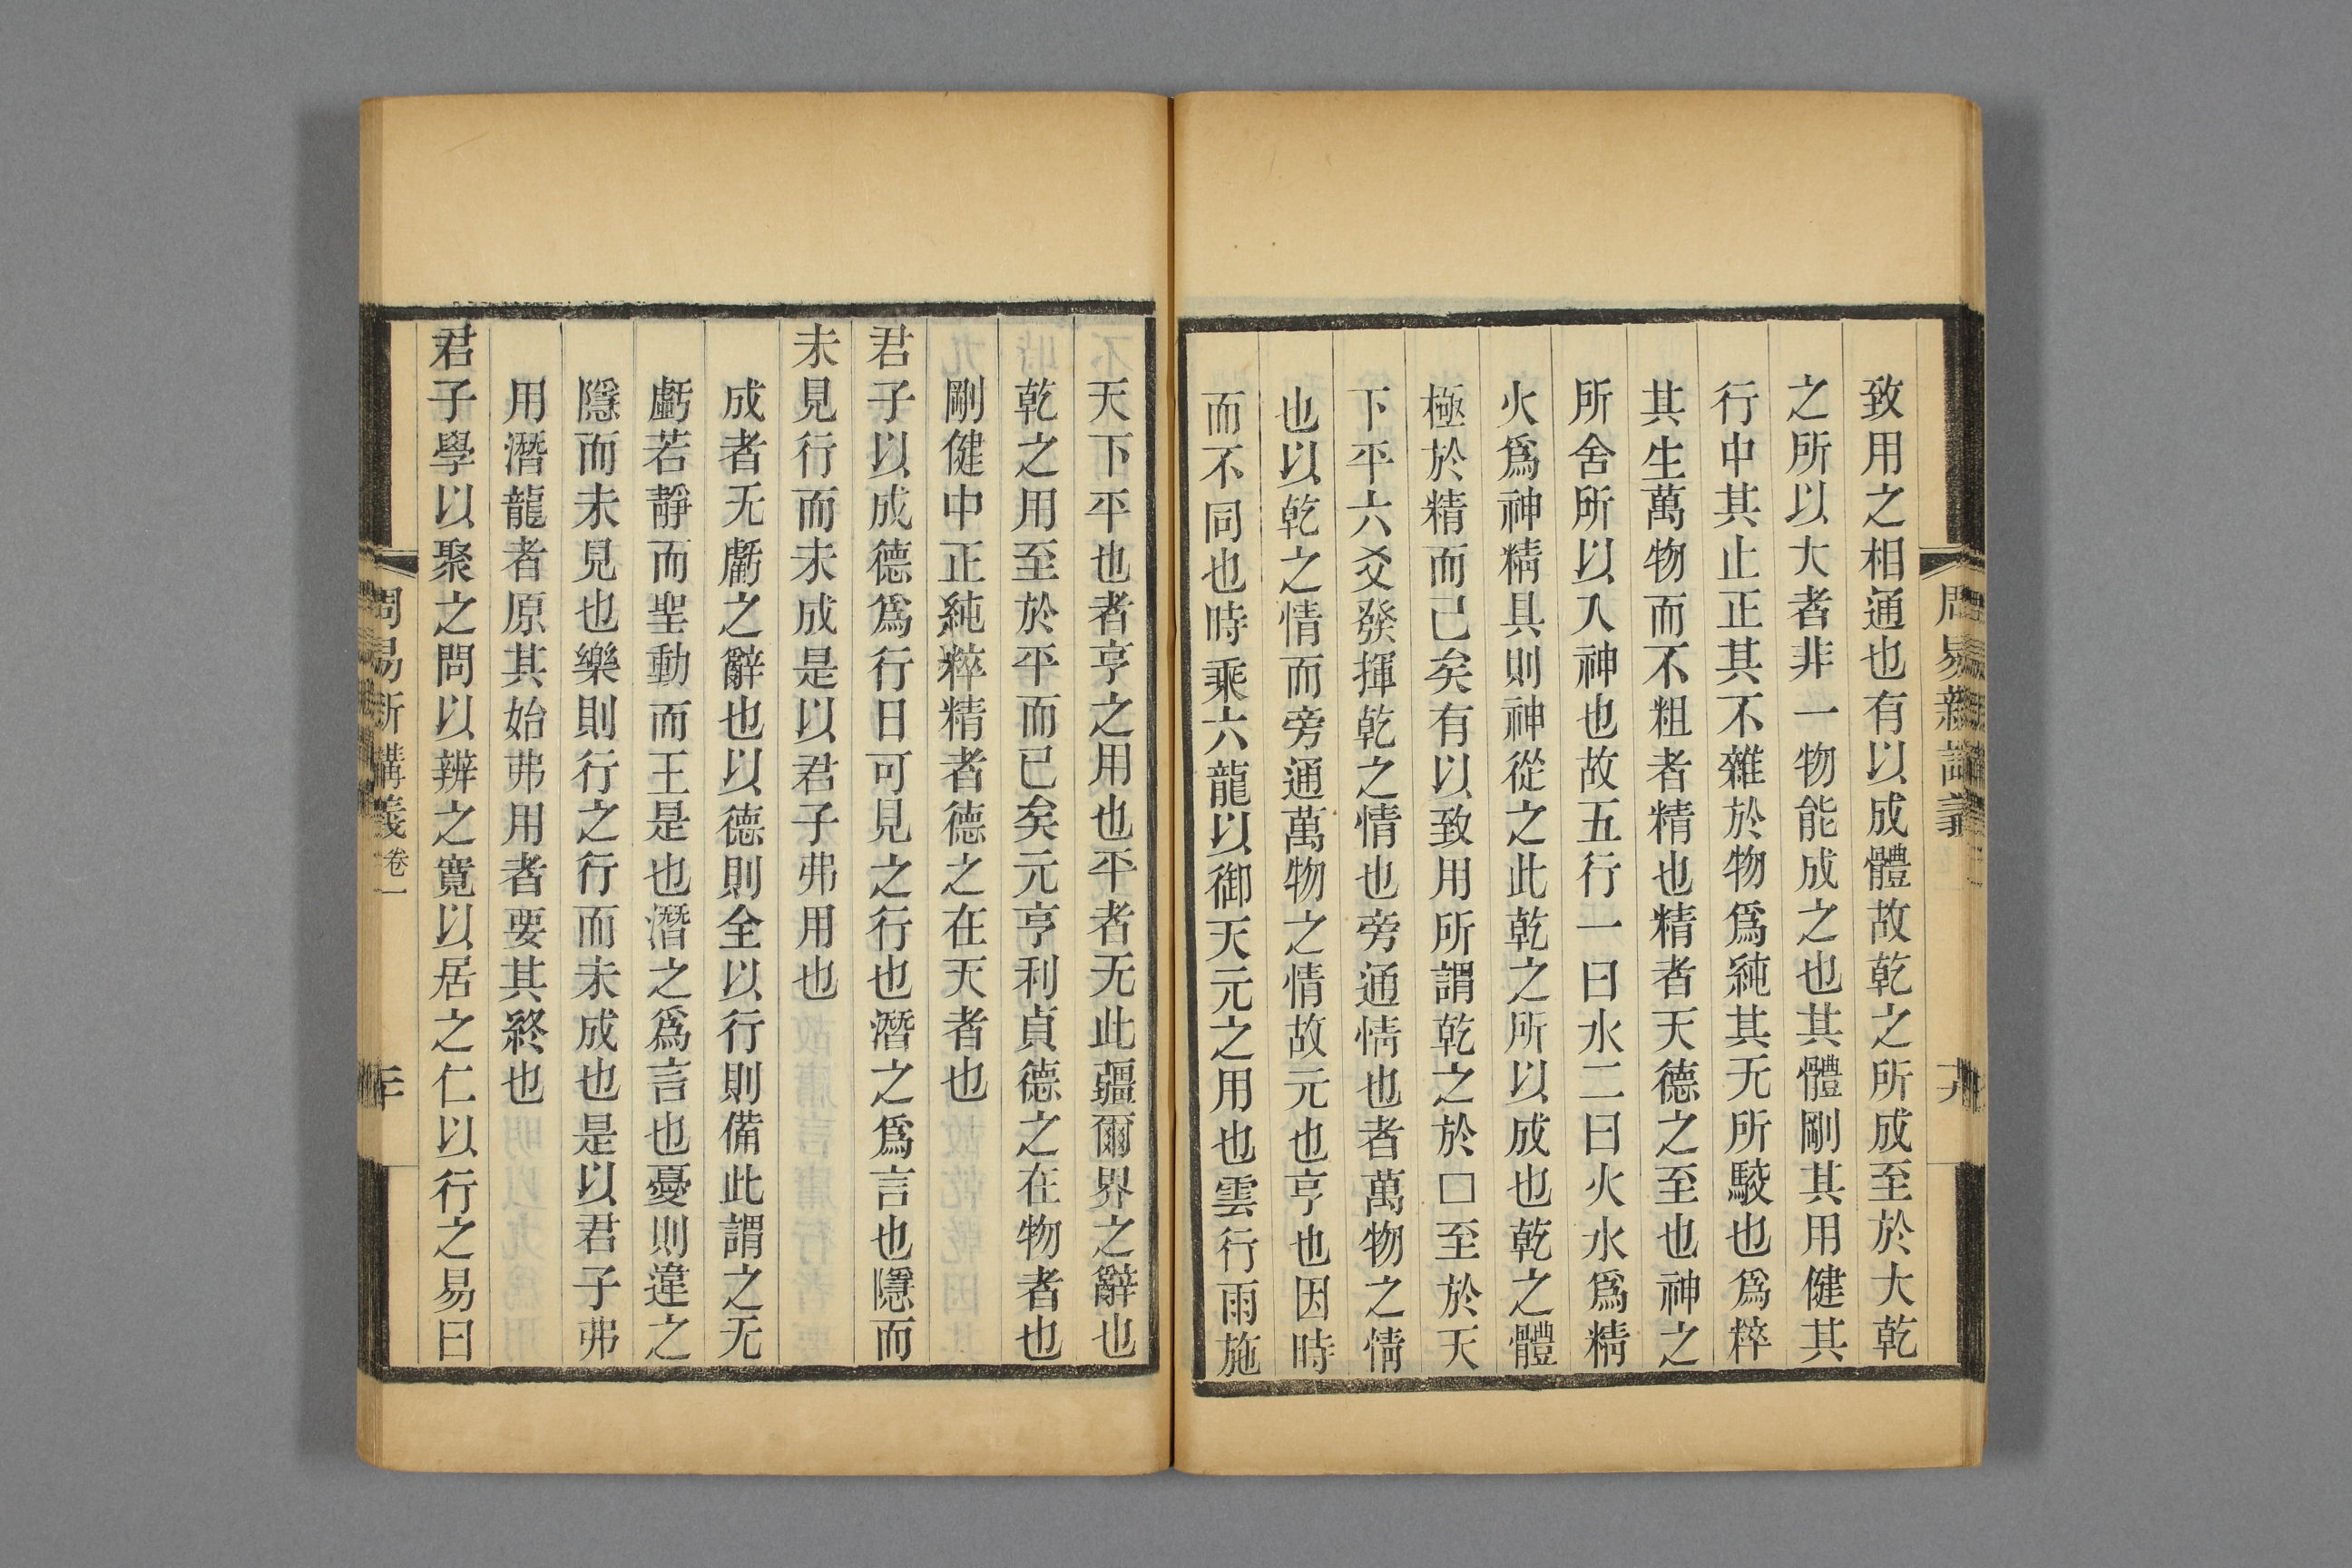 致用之相通也有以成體故乾之所成至於大乾
之所以大者非一物能成之也其體剛其用健其
行中其止正其不雜於物爲純其无所駁也爲粹
其生萬物而不粗者精也精者天德之至也神之
所舍所以入神也故五行一曰水二曰火水爲精
火爲神精具則神從之此乾之所以成也乾之體
極於精而已矣有以致用所謂乾之於□至於天
下平六爻發揮乾之情也旁通情也者萬物之情
也以乾之情而旁通萬物之情故元也亨也因時
而不同也時乘六龍以御天元之用也雲行雨施
天下平也者亨之用也平者无此疆爾界之辭也
乾之用至於平而已矣元亨利貞德之在物者也
剛健中正純粹精者德之在天者也
君子以成德爲行日可見之行也潛之爲言也隱而
未見行而未成是以君子弗用也
成者无虧之辭也以德則全以行則備此謂之无
虧若靜而聖動而王是也潛之爲言也憂則違之
隱而未見也樂則行之行而未成也是以君子弗
用潛龍者原其始弗用者要其終也
君子學以聚之問以辨之寬以居之仁以行之易曰
周易新講義 卷一